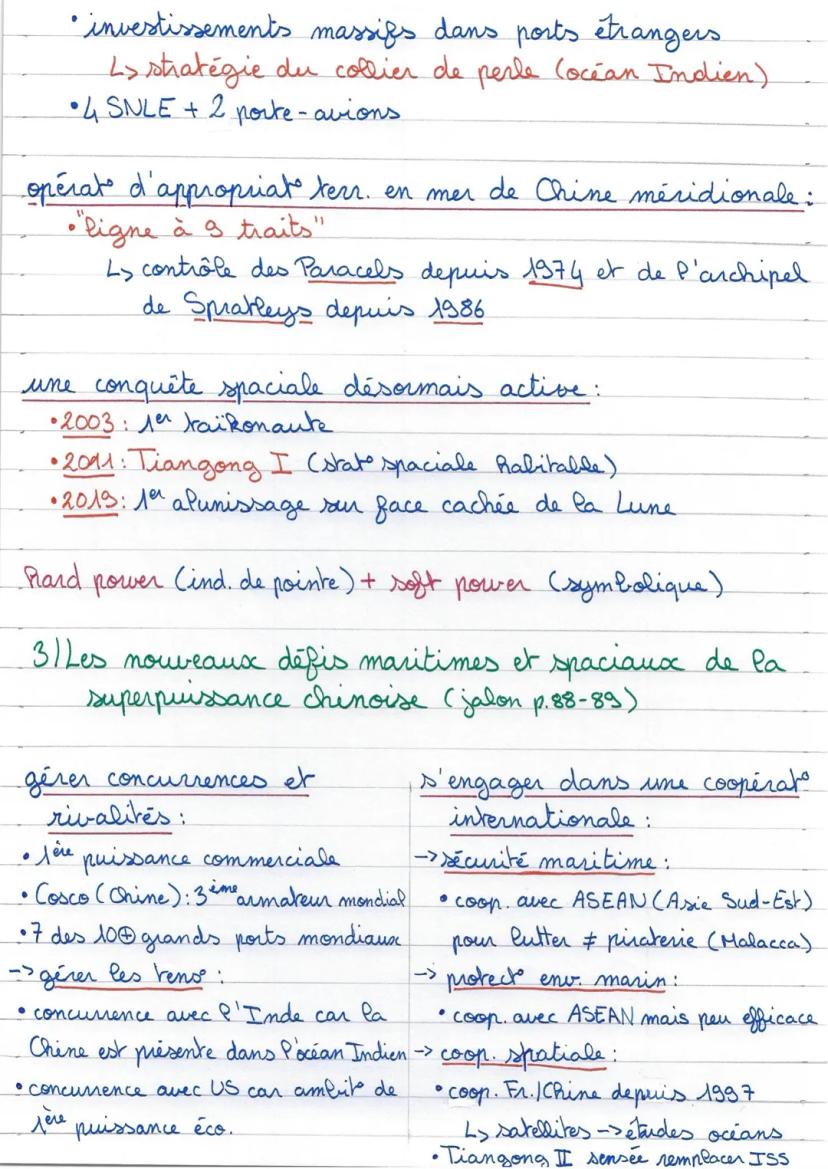 • investissements massifs dans ports étrangers
↳ stratégie du collier de perle (océan Indien)
• 4 SNLE + 2 porte-avions
opérat° d'appropriat° terr. en mer de Chine méridionale :
• "ligne à 9 traits"
↳ contrôle des Paracels depuis 1974 et de l'archipel
de Sprateys depuis 1986
une conquête spaciale désormais active :
• 2003 : 1er taïkonaute
• 2011 : Tiangong I (stat° spaciale habitable)
• 2019 : 1er alunissage sur face cachée de la Lune
Hard power (ind. de pointe) + soft power (symbolique)
3/ Les nouveaux défis maritimes et spaciaux de la
superpuissance chinoise (jalon p.88-89)
gérer concurrences et
rivalités :
• 1ère puissance commerciale
• Cosco (Chine) : 3ème armateur mondial
• 7 des 10 ⊕ grands ports mondiaux
-> gérer les tens° :
• concurrence avec l'Inde car la
Chine est présente dans l'océan Indien
• concurrence avec US car ambit° de
1ère puissance éco.
s'engager dans une coopérat°
internationale :
-> sécurité maritime :
• coop. avec ASEAN (Asie Sud-Est)
pour lutter ≠ piraterie (Malacca)
-> protect° env. marin :
• coop. avec ASEAN mais peu efficace
-> coop. spatiale :
• coop. Fr./Chine depuis 1997
↳ satellites -> études océans
• Tiangong II sensée remplacer ISS